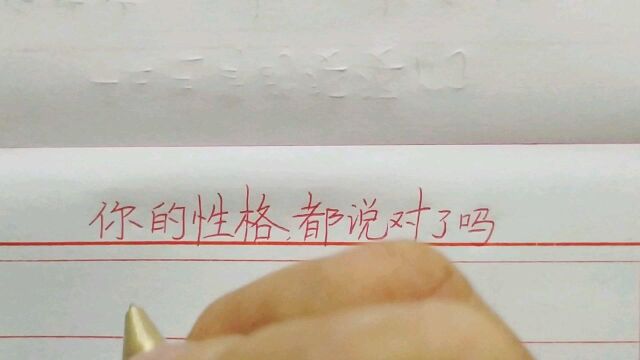 你的性格,都说对了吗